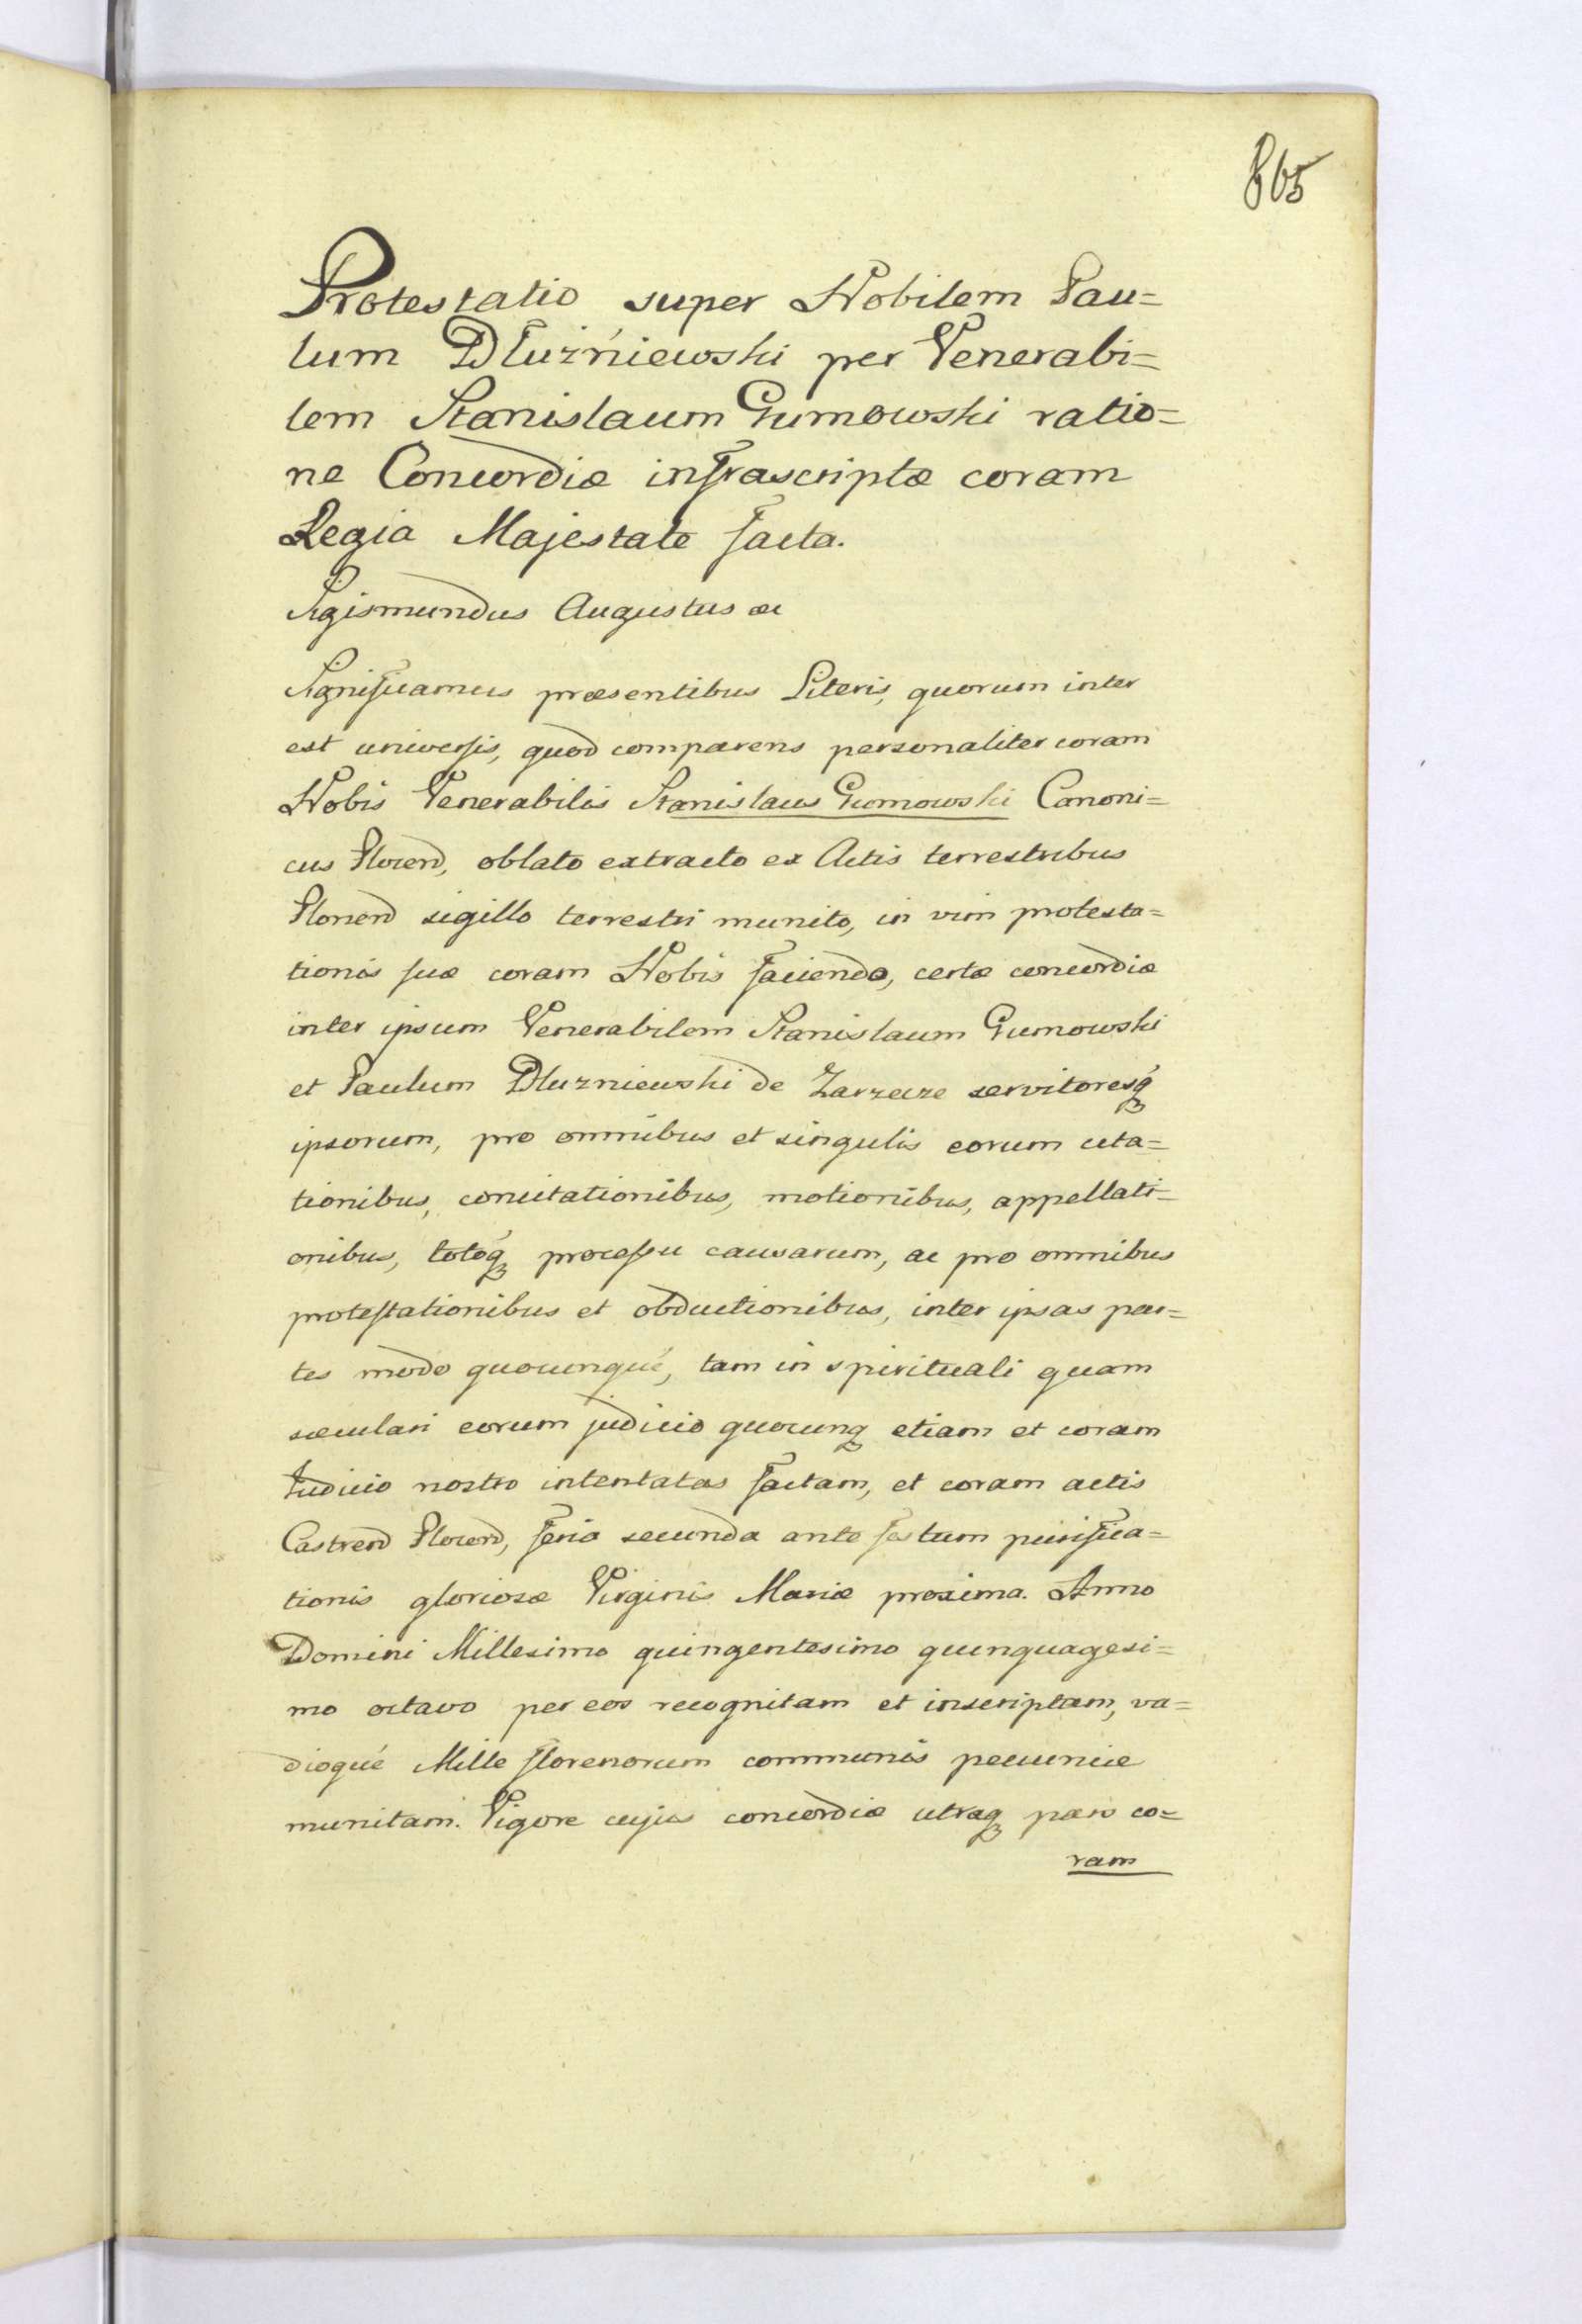 865
Protestatio super Nobilem Pau=
lum Dłuźniewski per Venerabi=
lem Stanislaum Gumowski ratio=
ne Concordiæ infrascriptæ coram
Regia Majestate facta.
Sigismundus Augustus &c
Significamus præsentibus Literis, quorum inter
est universis, quod comparens personaliter coram
Nobis Venerabilis Stanislaus Gumowski Canoni=
cus Plocen, oblato extracto ex Actis terrestribus
Plonen sigillo terrestri munito, in vim protesta=
tionis suæ coram Nobis faciendo, certæ concordiæ
inter ipsum Venerabilem Stanislaum Gumowski
et Paulum Dluzniewski de Zarzecze servitoresq
ipsorum, pro omnibus et singulis eorum cita=
tionibus, concitationibus, motionibus, appellati=
onibus, totoq processu causarum, ac pro omnibus
protestationibus et obductionibus, inter ipsas par=
tes modo quocunqué, tam in spirituali quam
sæculari eorum judicio quocunq etiam et coram
Judicio nostro intentatas factam, et coram actis
Castren Plocen, feria secunda ante festum purifica=
tionis gloriosæ Virginis Mariæ proxima. Anno
Domini Millesimo quingentesimo quinquagesi=
mo octavo per eos recognitam et inscriptam, va=
dioqué Mille florenorum communis pecuniæ
munitam. Vigore cujus concordiæ utraq pars co=
ram